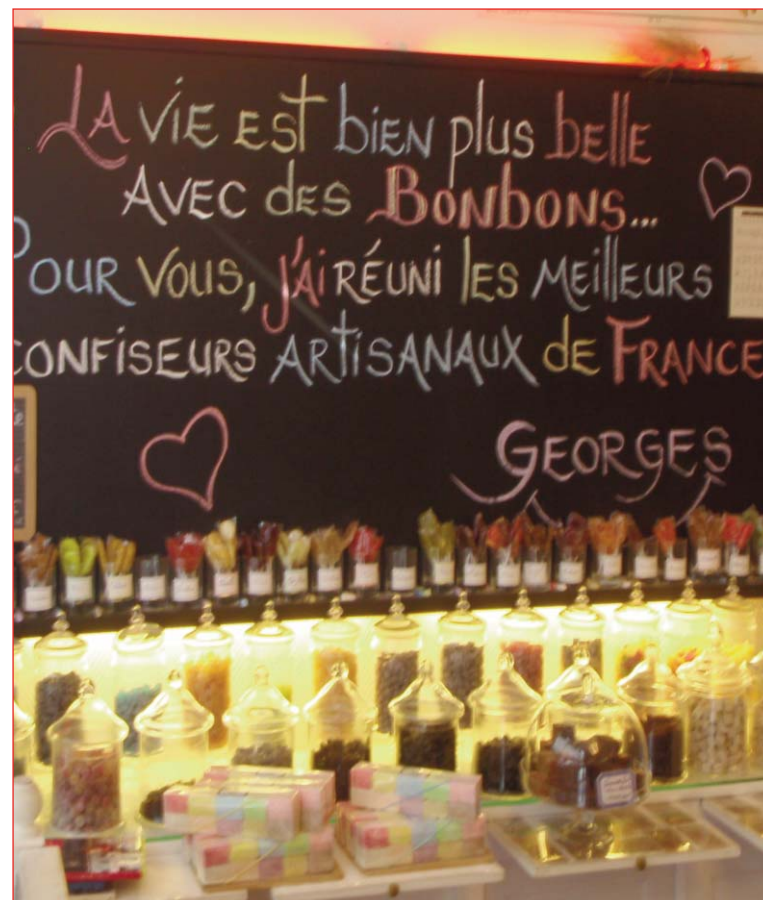 LA VIE EST biEN plus bellE
AVEC dES BONbONS...
POUR VOUS, J'AI RÉUNI lES MEillEURS
CONFiSEURS ARTiSANAUX dE FRANCE
GEORGES